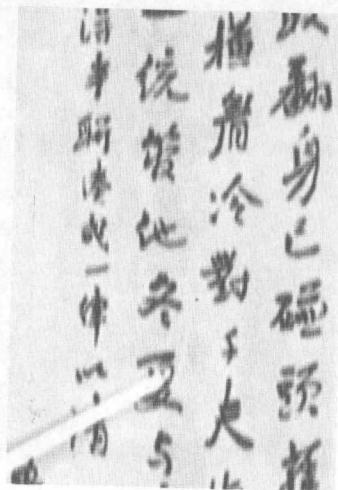 敢翻身已碰頭
橫眉冷對千夫
一統管他冬夏与
半聯湊成一律以請